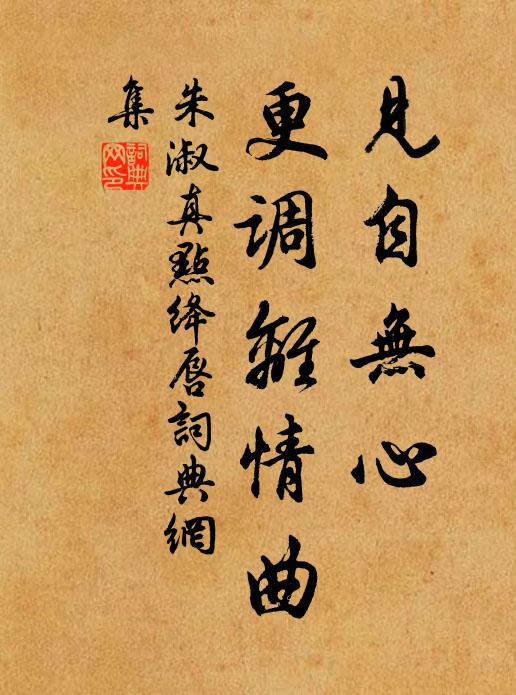 見自無心
更調離情曲
朱淑真點絳唇詞典網
集
詞典
网印